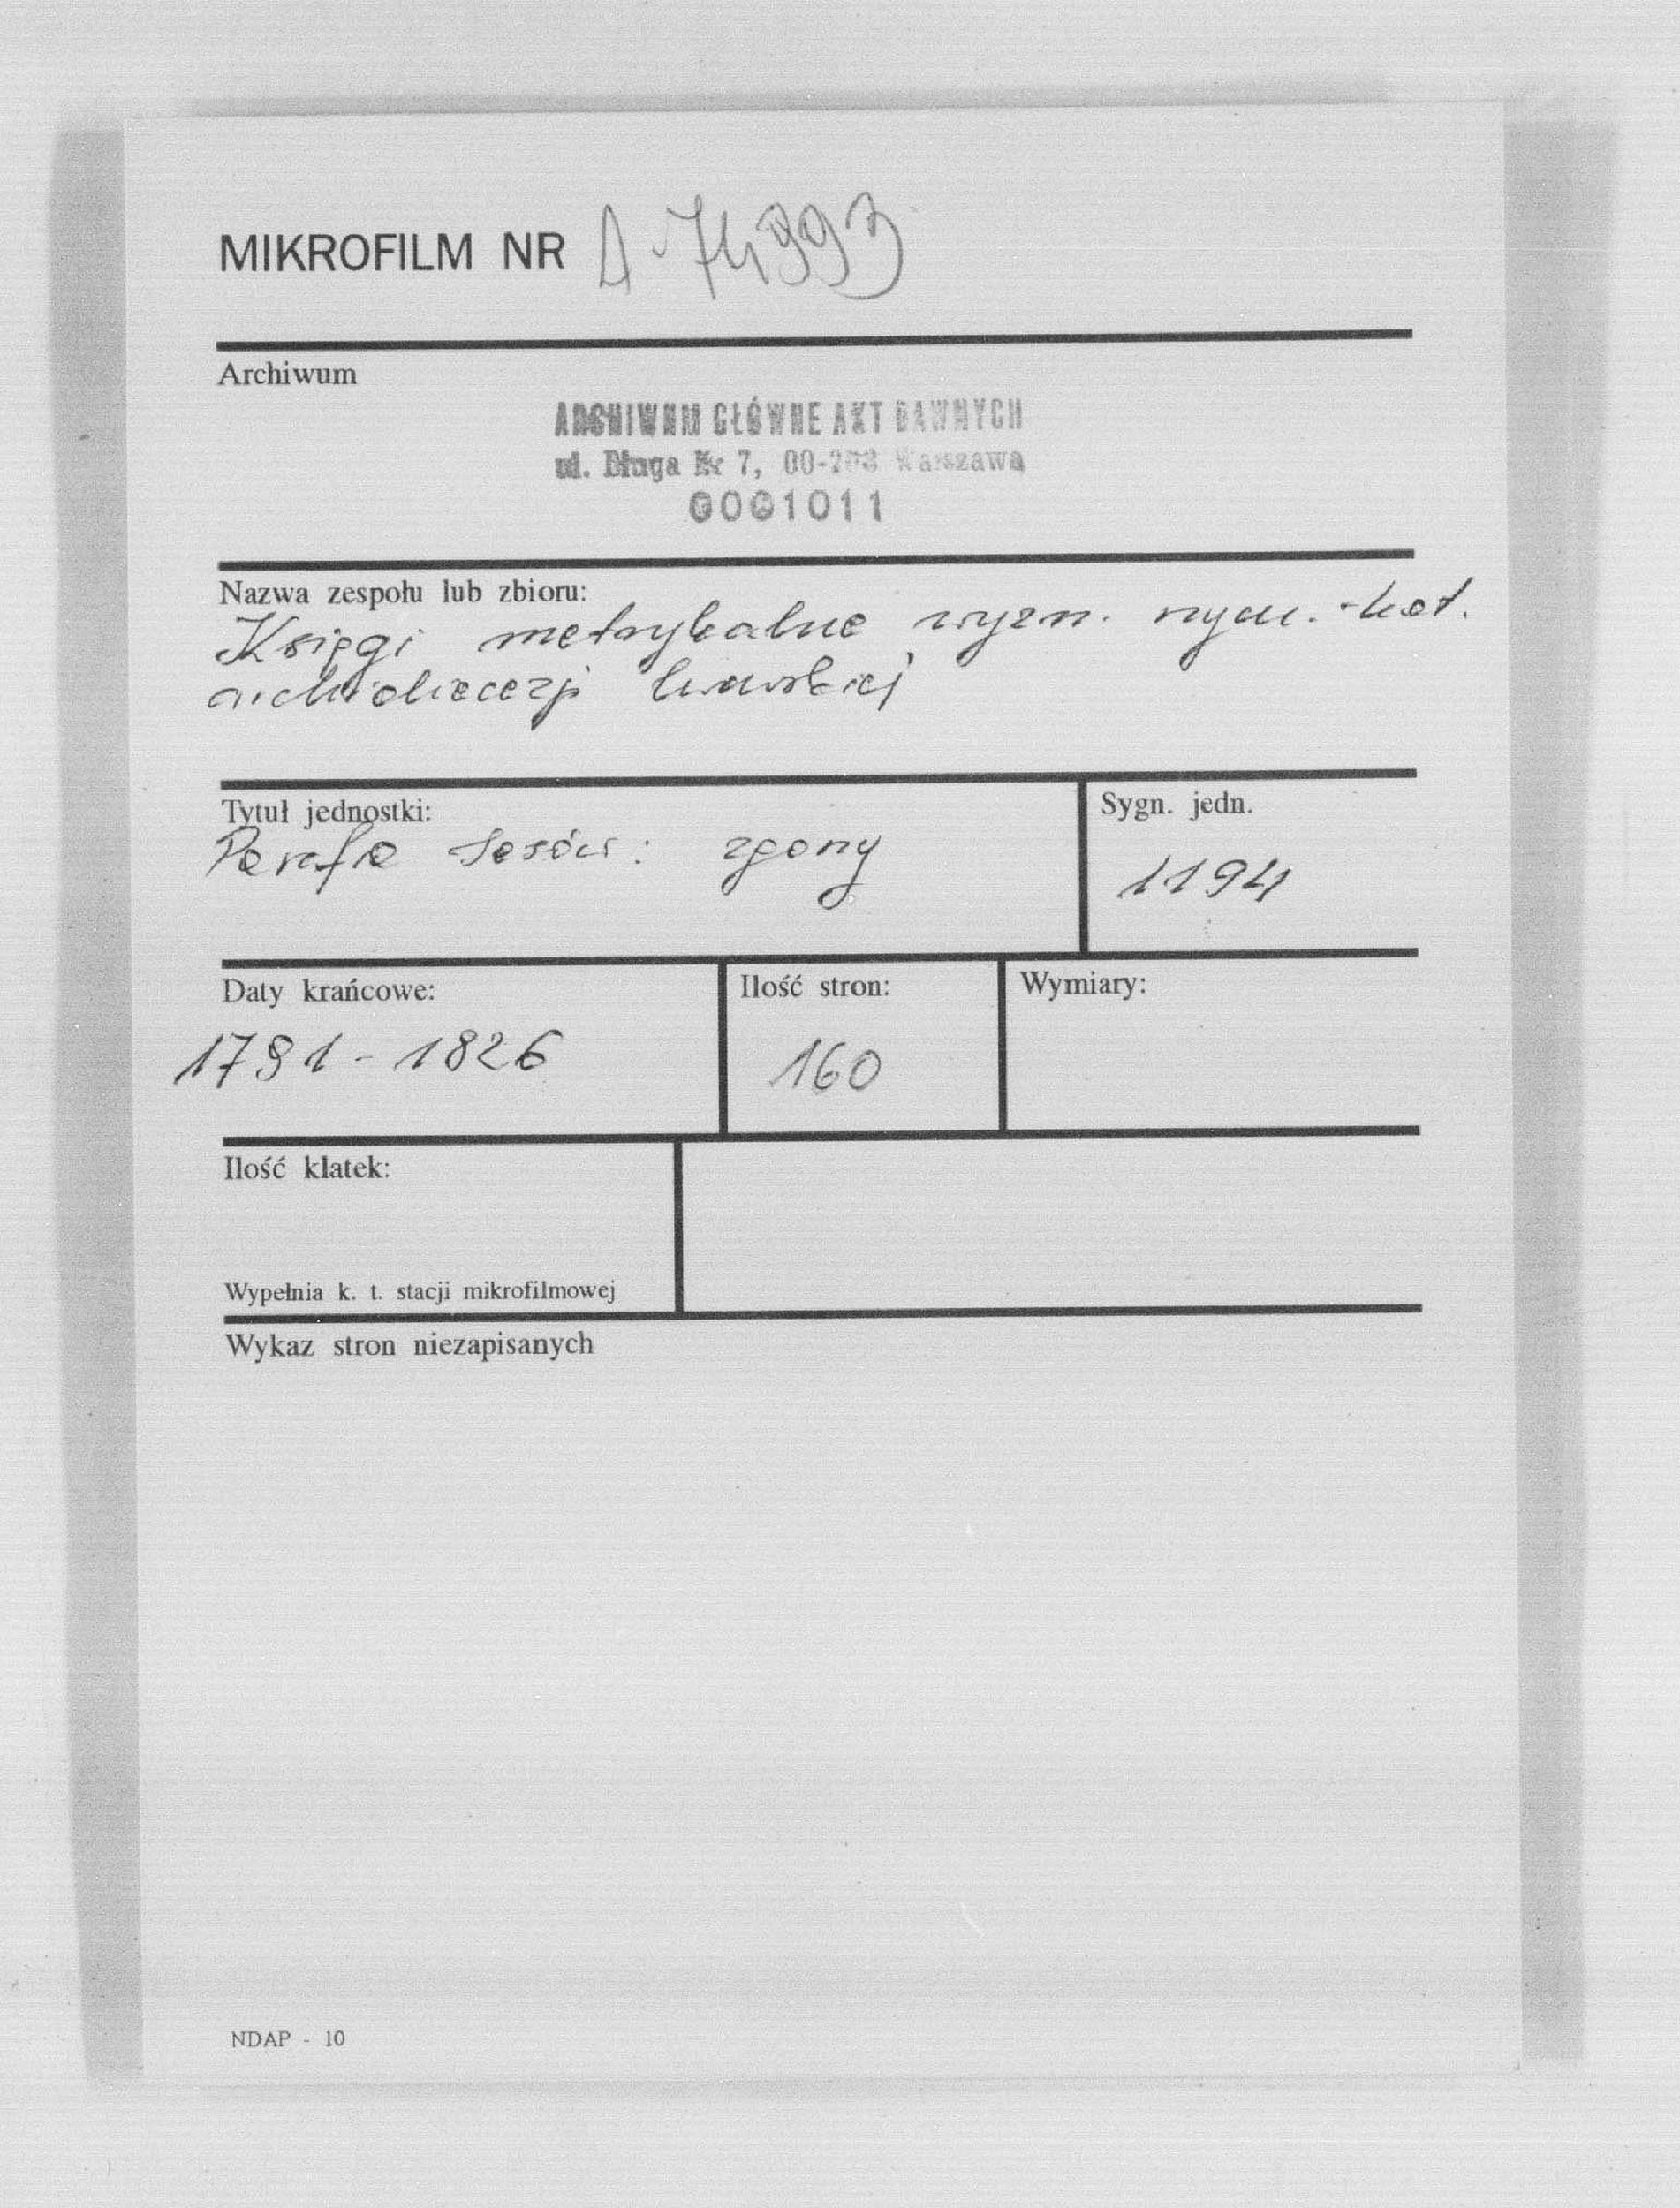 MIKROFILM NR A-74993
Archiwum
ARCHIWUM GŁÓWNE AKT DAWNYCH
ul. Długa Nr 7, 00-263 Warszawa
0001011
Nazwa zespołu lub zbioru:
Księgi metrykalne wyzn. rzym.-kat.
archidiecezji lwowskiej
Tytuł jednostki:
Parafia : zgony
Sygn. jedn.
1194
Daty krańcowe:
1791 - 1826
Ilość stron:
160
Wymiary:
Ilość klatek:
Wypełnia k. t. stacji mikrofilmowej
Wykaz stron niezapisanych
NDAP - 10